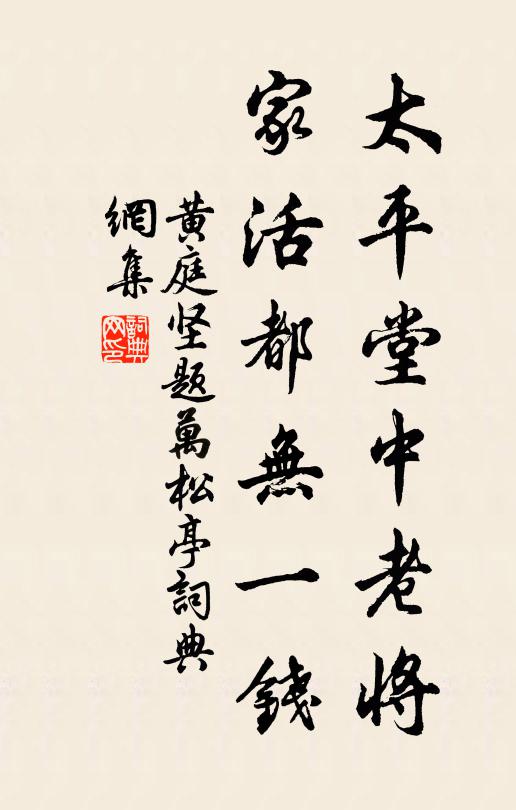 太平堂中老将
家活都無一錢
黄庭坚題萬松亭詞典
網集
詞典
网印